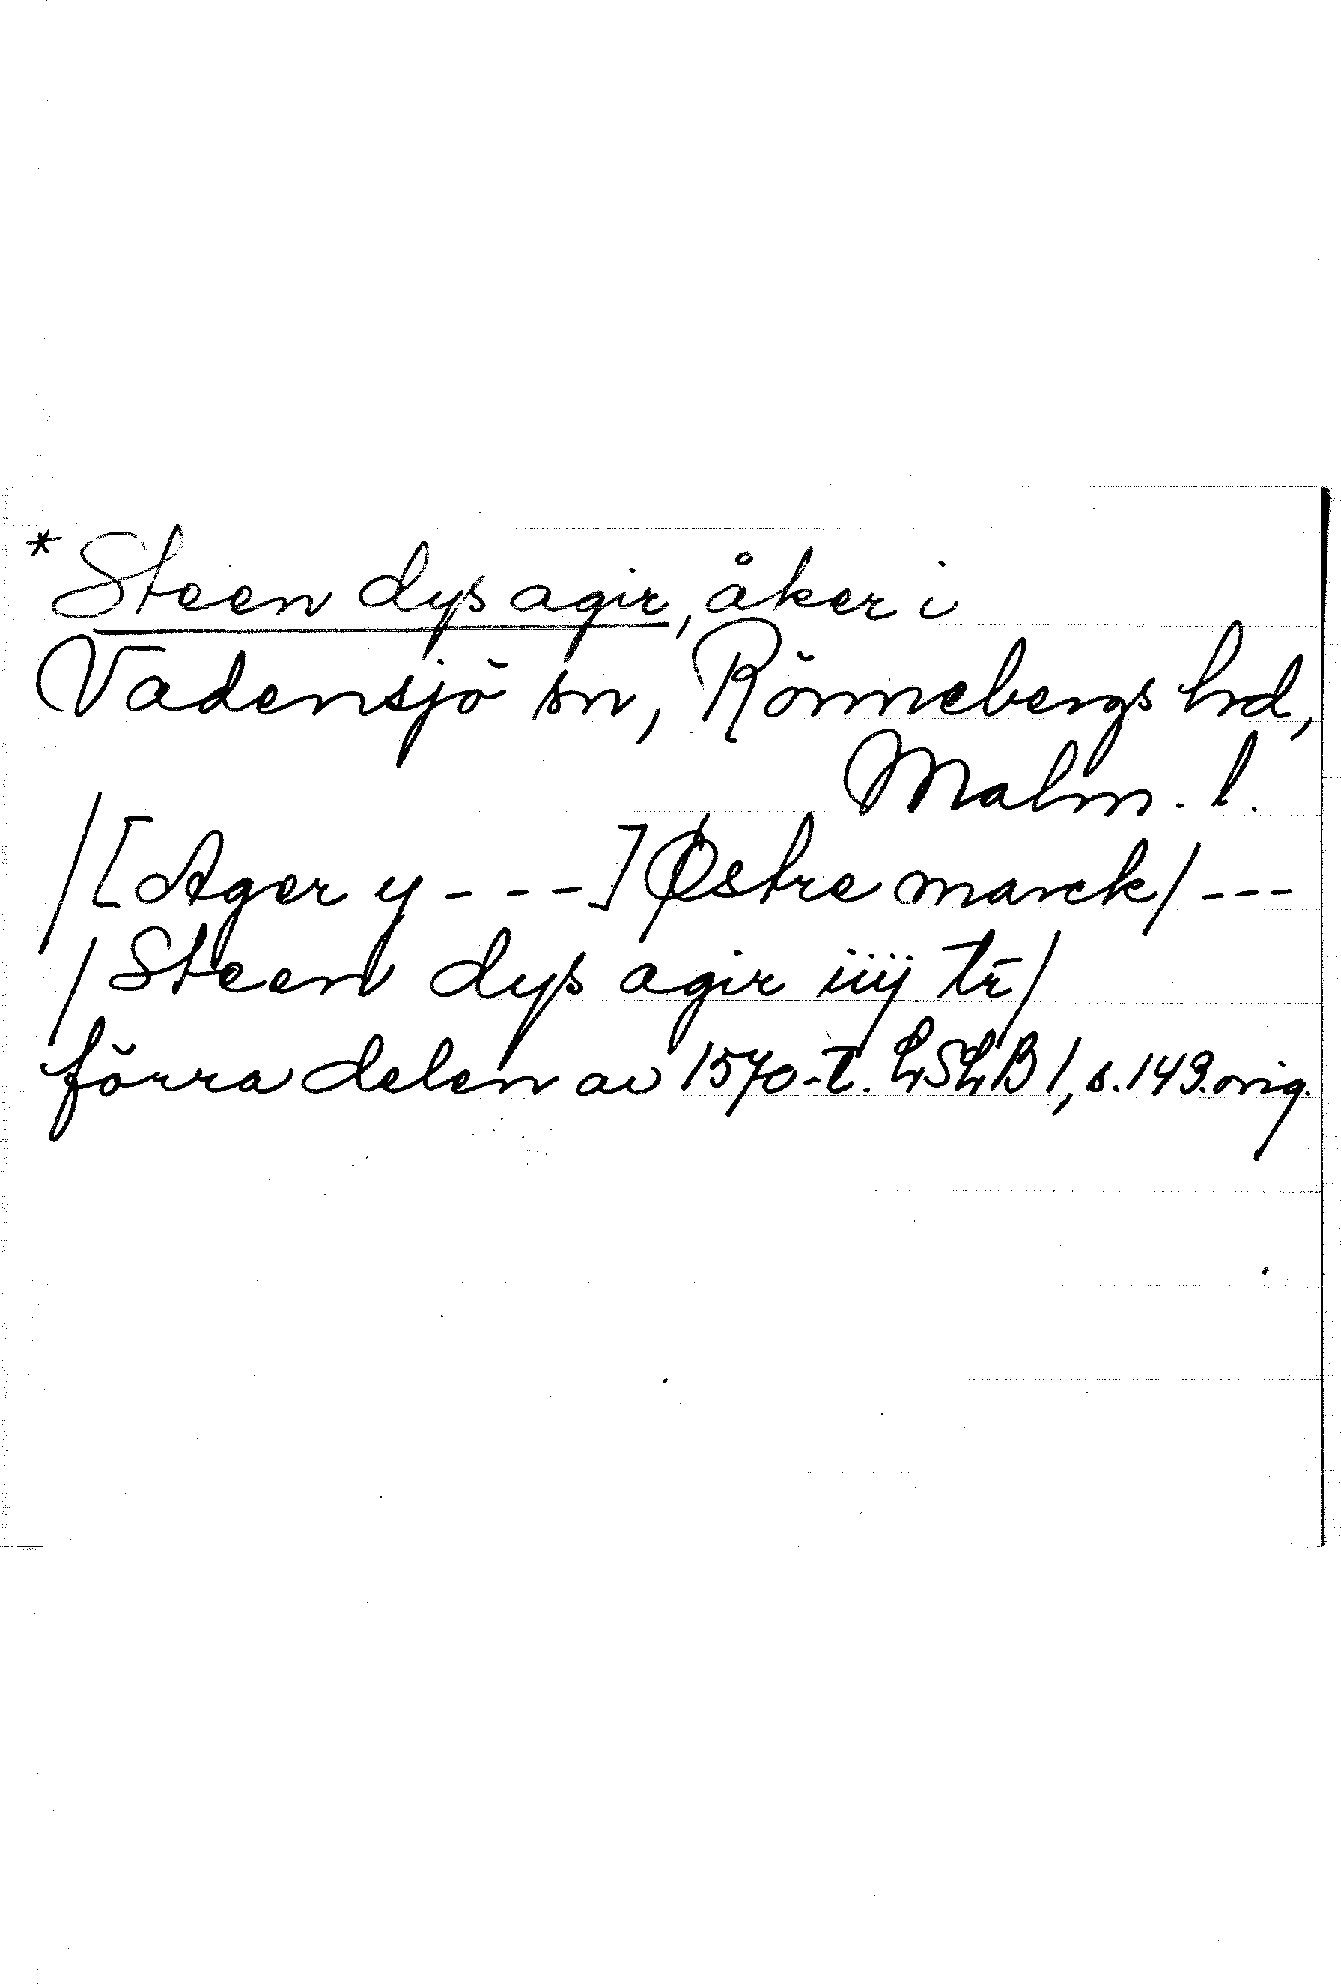 *Steen dys agir, åker i
Vadensjö sn, Rönnebergs hrd,
Malm. l.
/[Ager y - - -] Østre marck/ - - -
/Steen dys agir iiij tr̄/
förra delen av 1570-t. LSLB 1, s. 143. orig.